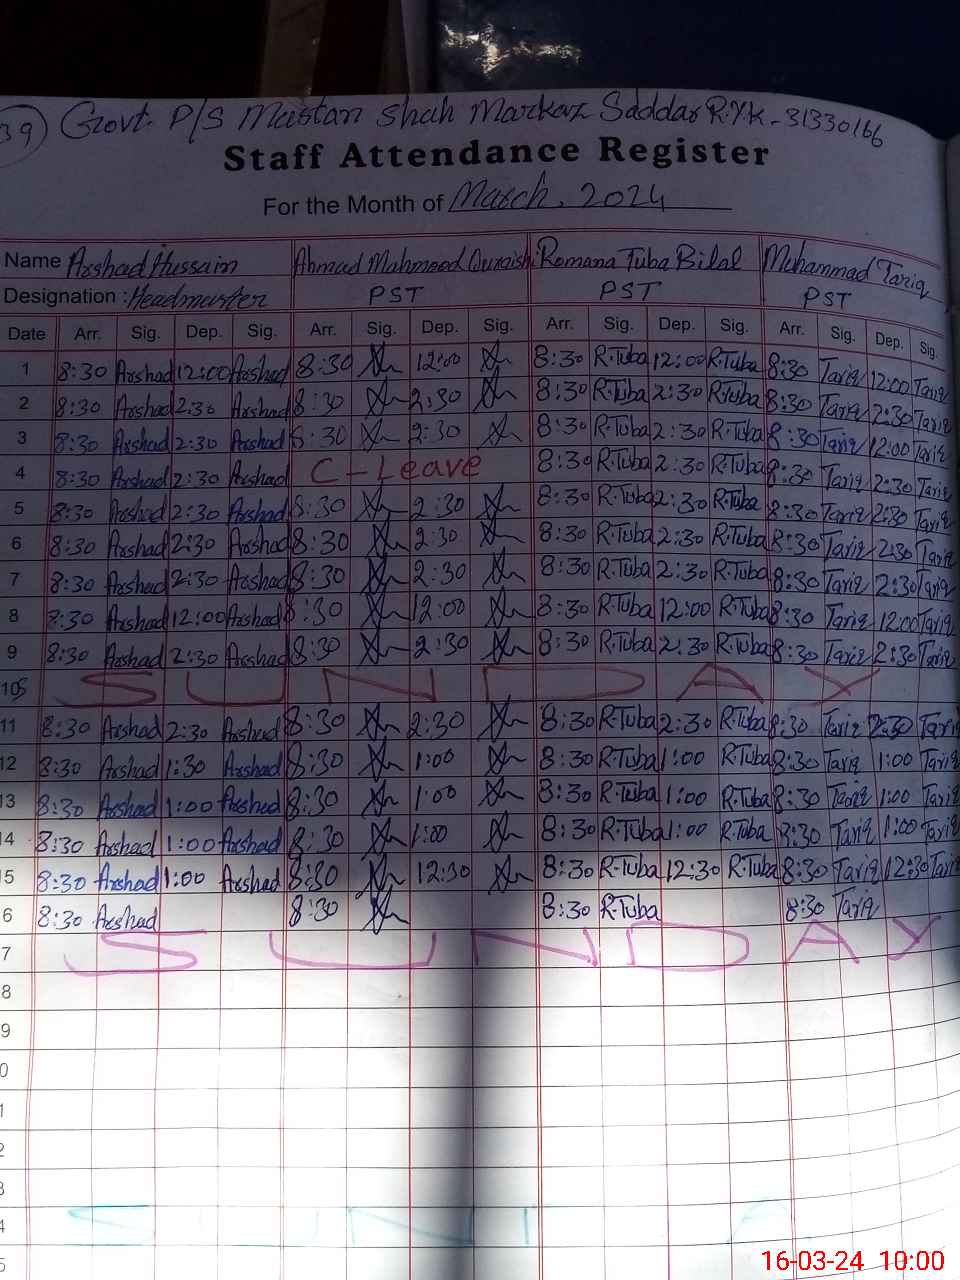 39 Govt. P/S Mastan Shah Markaz Saddar R.Y.K - 31330166
Staff Attendance Register
For the Month of March, 2024
Name Arshad Hussain Ahmad Mahmood Quraishi Romana Tuba Bilal Muhammad Tariq
Designation : Headmaster PST PST PST
Date Arr. Sig. Dep. Sig. Arr. Sig. Dep. Sig. Arr. Sig. Dep. Sig. Arr. Sig. Dep. Sig.
1 8:30 Arshad 12:00 Arshad 8:30 12:00 8:30 R.Tuba 12:00 R.Tuba 8:30 Tariq 12:00 Tariq
2 8:30 Arshad 2:30 Arshad 8:30 2:30 8:30 R.Tuba 2:30 R.Tuba 8:30 Tariq 2:30 Tariq
3 8:30 Arshad 2:30 Arshad 8:30 2:30 8:30 R.Tuba 2:30 R.Tuba 8:30 Tariq 12:00 Tariq
4 8:30 Arshad 2:30 Arshad C-Leave 8:30 R.Tuba 2:30 R.Tuba 8:30 Tariq 2:30 Tariq
5 8:30 Arshad 2:30 Arshad 8:30 2:30 8:30 R.Tuba 2:30 R.Tuba 8:30 Tariq 2:30 Tariq
6 8:30 Arshad 2:30 Arshad 8:30 2:30 8:30 R.Tuba 2:30 R.Tuba 8:30 Tariq 2:30 Tariq
7 8:30 Arshad 2:30 Arshad 8:30 2:30 8:30 R.Tuba 2:30 R.Tuba 8:30 Tariq 2:30 Tariq
8 8:30 Arshad 12:00 Arshad 8:30 12:00 8:30 R.Tuba 12:00 R.Tuba 8:30 Tariq 12:00 Tariq
9 8:30 Arshad 2:30 Arshad 8:30 2:30 8:30 R.Tuba 2:30 R.Tuba 8:30 Tariq 2:30 Tariq
10 SUNDAY
11 8:30 Arshad 2:30 Arshad 8:30 2:30 8:30 R.Tuba 2:30 R.Tuba 8:30 Tariq 2:30 Tariq
12 8:30 Arshad 1:30 Arshad 8:30 1:00 8:30 R.Tuba 1:00 R.Tuba 8:30 Tariq 1:00 Tariq
13 8:30 Arshad 1:00 Arshad 8:30 1:00 8:30 R.Tuba 1:00 R.Tuba 8:30 Tariq 1:00 Tariq
14 8:30 Arshad 1:00 Arshad 8:30 1:00 8:30 R.Tuba 1:00 R.Tuba 8:30 Tariq 1:00 Tariq
15 8:30 Arshad 1:00 Arshad 8:30 12:30 8:30 R.Tuba 12:30 R.Tuba 8:30 Tariq 12:30 Tariq
6 8:30 Arshad 8:30 8:30 R.Tuba 8:30 Tariq
7 SUNDAY
8
9
0
1
2
3
4
5
16-03-24 10:00